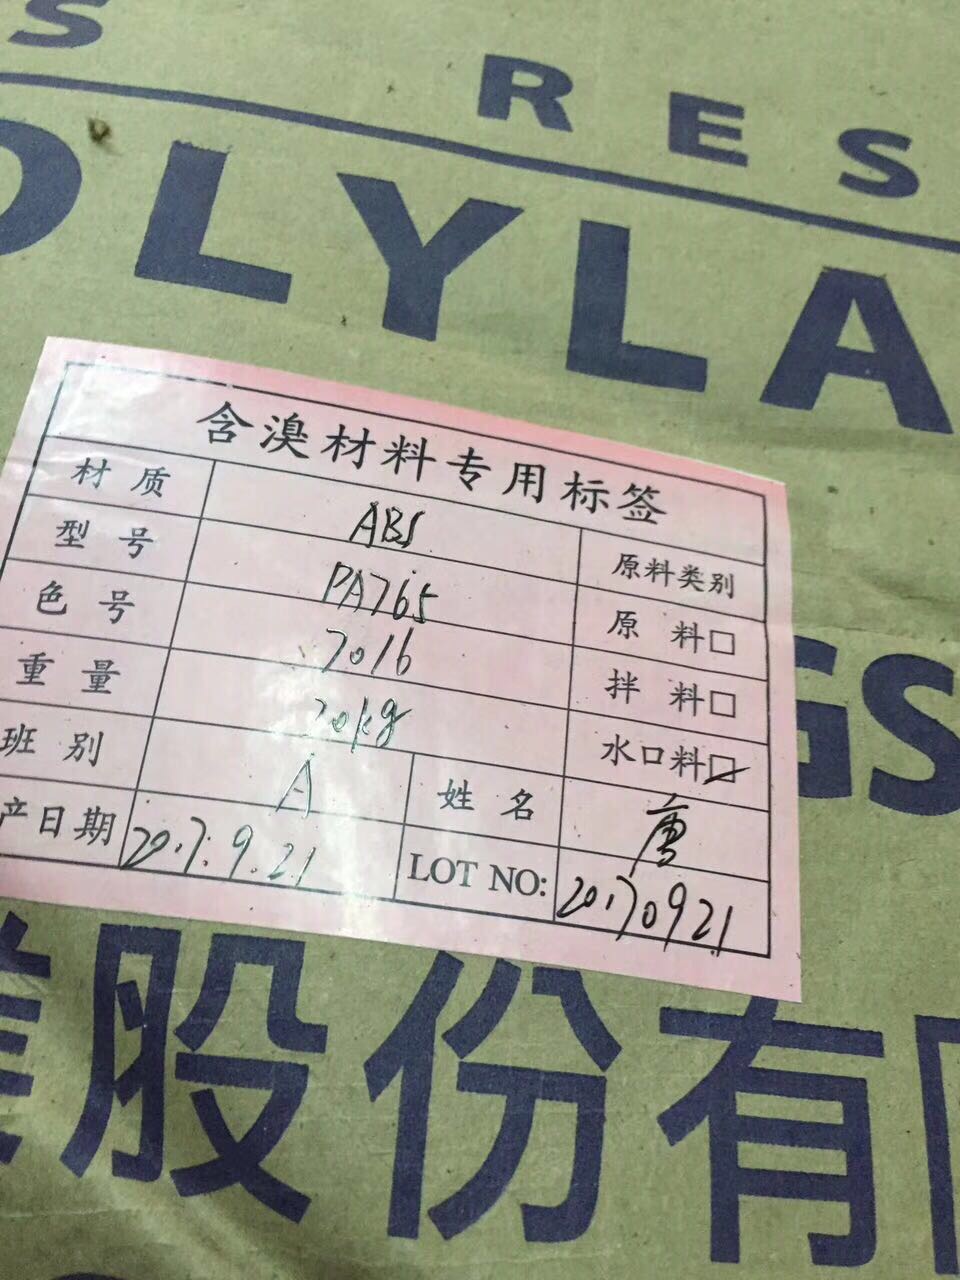 S RES
OLYLA
含溴材料专用标签
材质 ABS 原料类别
型号 PA765 原料□
色号 7016 拌料□
重量 20kg 水口料☑
班别 A 姓名 唐
产日期 2017.9.21 LOT NO: 20170921
GS
股份有